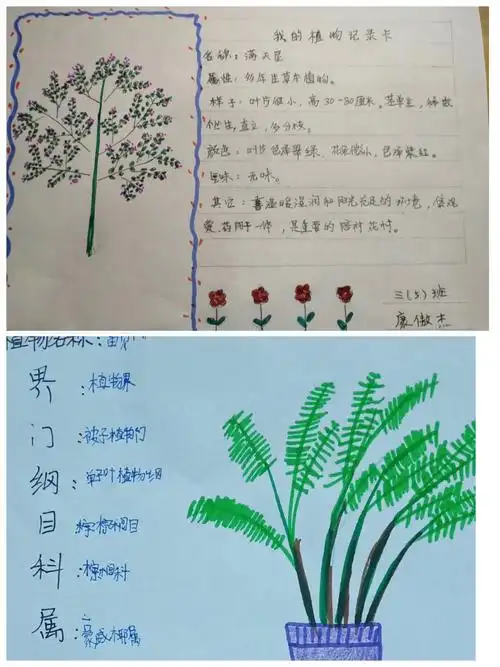 我的植物记录卡
名称：满天星
属性：多年生草本植物。
样子：叶片细小，高30-80厘米。茎单生，稀数
个丛生，直立，多分枝。
颜色：叶片色泽翠绿、花朵微小，色泽紫红。
气味：无味。
其它：喜温暖湿润和阳光充足的环境，
，是重要的陪衬花材。
三(5)班
廖傲杰
植物名称：
界：植物界
门：被子植物门
纲：单子叶植物纲
目：棕榈目
科：棕榈科
属：